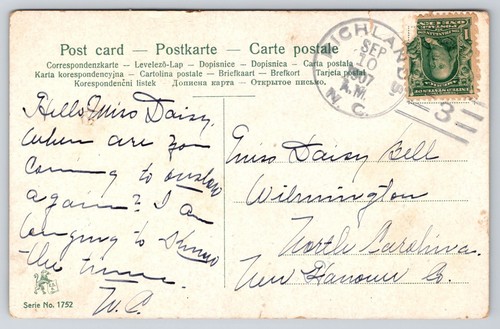 Post card — Postkarte — Carte postale
Correspondenzkarte — Levelező-Lap — Dopisnice — Dopisnica
Karta korespondencyjna — Cartolina postale — Briefkaart — Brefkort — Tarjeta postal
Korespondenční listek — Дописна карта — Открытое письмо.
RICHLANDS
SEP
10
1907
A.M.
N. C.
3
1
Hello Miss Daisy,
when are you
coming to onslow
again? I am
longing to Know
the time.
W. C.
Miss Daisy Bell
Wilmington
North Carolina.
New Hanover Co.
Serie No. 1752